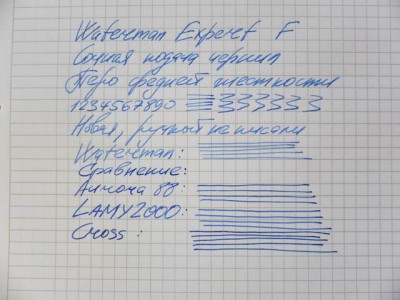 Waterman Expert F
Сочная подача чернил
Перо средней жесткости
1234567890
Новая, ручкой не писали
Waterman:
Сравнение:
Аврора 88:
LAMY2000:
Cross: